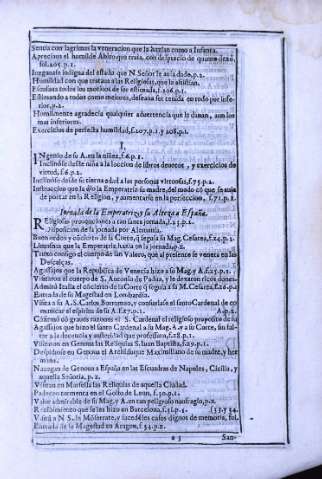 Sentia con lagrimas la veneracion que la hazian como a Infanta.
Aprecioua el humilde Abito que traia, con desprecio de quanto
fol.205.p.1.
Iuzgauase indigna del estado que N. Señor le auia dado, p.2.
Humildad con que trataua a las Religiosas, que la assistian.
Escusaua todos los motiuos de ser estimada, f.206.p.1.
Estimando a todas como mayores, deseaua ser tenida en todo por inferior, p.2.
Humilmente agradecia qualquier aduertencia que la dauan, aun las mas inferiores.
Exercicios de perfecta humildad, f.207.p.1. y 208.p.1.
I.
INgenio de su A. en la niñez, f.6.p.1.
Inclinose desde niña a la leccion de libros deuotos, y exercicios de virtud, f.6.p.1.
Inclinose desde su tierna edad a las personas virtuosas, f.75.p.2.
Instruccion que la dio la Emperatriz su madre, del modo cō que se auia de portar en la Religion, y aumentarse en la perfeccion, f.71.p.2.
Iornada de la Emperatriz y su Alteza a España.
REligiosas preuenciones a tan santa jornada, f.23.p.1.
Disposicion de la jornada por Alemania.
Buen orden y concierto de la Corte, q̃ seguia su Mag. Cesarea, f.24.p.1.
Limosnas que la Emperatriz hazia en la jornada, p.2.
Traxo consigo el cuerpo de san Valero, que al presente se venera en las Descalças.
Agasajos que la Republica de Venecia hizo a su Mag. y A. f.25.p.1.
Visitaron el cuerpo de S. Antonio de Padua, y le dexaron ricos dones.
Admirò Italia el concierto de la Corte q̃ seguia a su M. Cesarea, f.26.p.1.
Entrada de su Magestad en Lombardia.
Visita a su A. S. Carlos Borromeo, y consultase el santo Cardenal de comunicar el espiritu de su A. f.27.p.1.
Confirmò cō graues razones el S. Cardenal el religioso proposito de su A.
Agasajos que hizo el santo Cardenal a su Mag. A. a su Corte, sin faltar a la decencia y austeridad que professaua, f.28.p.1.
Visitaron en Genoua las Reliquias S. Iuan Baptista, f.29.p.1.
Despidiose en Genoua el Archiduque Maximiliano de su madre, y hermana.
Nauegan de Genoua a España en las Escuadras de Napoles, Cicilia, y aquella Señoria, p.2.
Visitan en Marsella las Reliquias de aquella Ciudad.
Padecen tormenta en el Golfo de Leon, f.30.p.1.
Valor admirable de su Mag. y A. en tan peligroso naufragio, p.2.
Recibimiento que se les hizo en Barcelona, f.31.p.1. (33. y 34.
Visita a N. S. de Monserrate, y sucedēles casos dignos de memoria, fol.
Entrada de su Magestad en Aragon, f.34.p.2.
a 3 San-